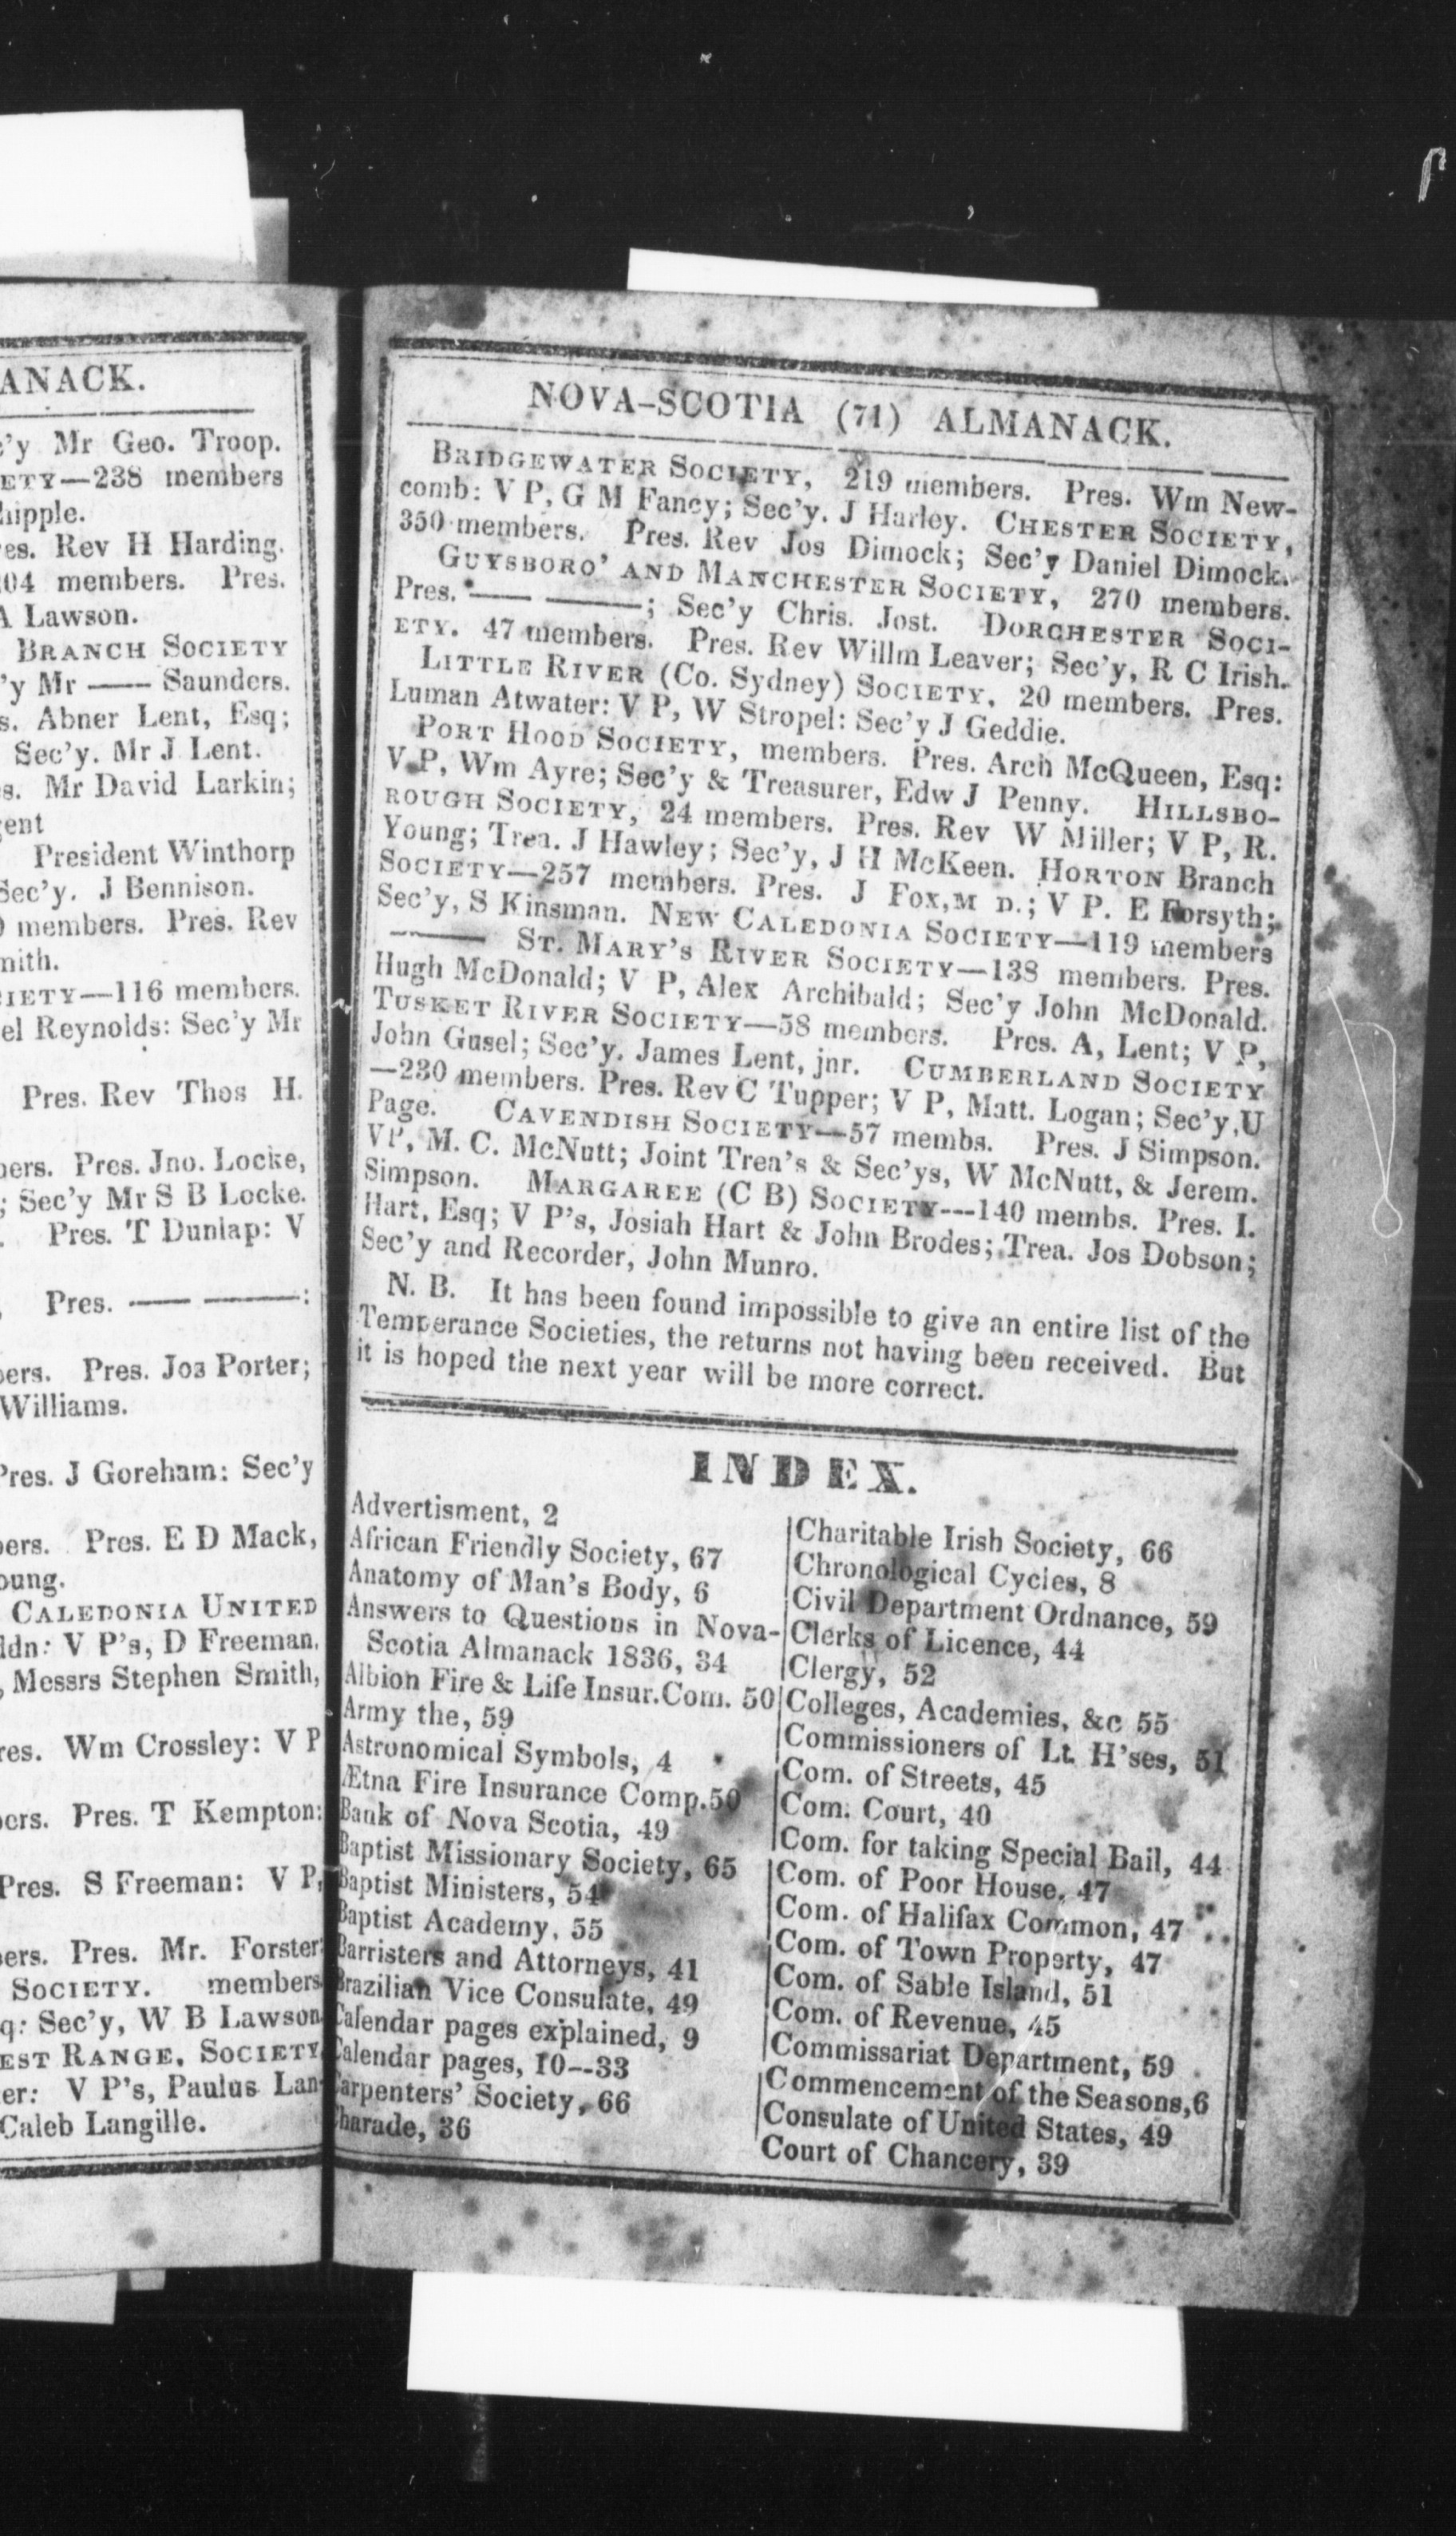 ANACK.
c'y Mr Geo. Troop.
ETY—238 members
hipple.
es. Rev H Harding.
04 members. Pres.
A Lawson.
BRANCH SOCIETY
'y Mr —— Saunders.
s. Abner Lent, Esq;
Sec'y. Mr J Lent.
s. Mr David Larkin;
gent
President Winthorp
Sec'y. J Bennison.
0 members. Pres. Rev
mith.
IETY—116 members.
el Reynolds: Sec'y Mr
Pres. Rev Thos H.
bers. Pres. Jno. Locke,
; Sec'y Mr S B Locke.
. Pres. T Dunlap: V
, Pres. —— ——:
bers. Pres. Jos Porter;
Williams.
Pres. J Goreham: Sec'y
bers. Pres. E D Mack,
oung.
CALEDONIA UNITED
ldn: V P's, D Freeman,
, Messrs Stephen Smith,
res. Wm Crossley: V P
bers. Pres. T Kempton:
Pres. S Freeman: V P,
bers. Pres. Mr. Forster:
SOCIETY. members
q: Sec'y, W B Lawson.
EST RANGE, SOCIETY
er: V P's, Paulus Lan-
Caleb Langille.
NOVA-SCOTIA (71) ALMANACK.
BRIDGEWATER SOCIETY, 219 members. Pres. Wm New-
comb: V P, G M Fancy; Sec'y. J Harley. CHESTER SOCIETY,
350 members. Pres. Rev Jos Dimock; Sec'y Daniel Dimock.
GUYSBORO' AND MANCHESTER SOCIETY, 270 members.
Pres. —— ——; Sec'y Chris. Jost. DORCHESTER SOCI-
ETY. 47 members. Pres. Rev Willm Leaver; Sec'y, R C Irish.
LITTLE RIVER (Co. Sydney) SOCIETY, 20 members. Pres.
Luman Atwater: V P, W Stropel: Sec'y J Geddie.
PORT HOOD SOCIETY, members. Pres. Arch McQueen, Esq:
V P, Wm Ayre; Sec'y & Treasurer, Edw J Penny. HILLSBO-
ROUGH SOCIETY, 24 members. Pres. Rev W Miller; V P, R.
Young; Trea. J Hawley; Sec'y, J H McKeen. HORTON Branch
SOCIETY—257 members. Pres. J Fox, M D.; V P. E Forsyth;
Sec'y, S Kinsman. NEW CALEDONIA SOCIETY—119 members
—— ST. MARY'S RIVER SOCIETY—138 members. Pres.
Hugh McDonald; V P, Alex Archibald; Sec'y John McDonald.
TUSKET RIVER SOCIETY—58 members. Pres. A, Lent; V P,
John Gusel; Sec'y. James Lent, jnr. CUMBERLAND SOCIETY
—230 members. Pres. Rev C Tupper; V P, Matt. Logan; Sec'y, U
Page. CAVENDISH SOCIETY—57 membs. Pres. J Simpson.
VP, M. C. McNutt; Joint Trea's & Sec'ys, W McNutt, & Jerem.
Simpson. MARGAREE (C B) SOCIETY---140 membs. Pres. I.
Hart, Esq; V P's, Josiah Hart & John Brodes; Trea. Jos Dobson;
Sec'y and Recorder, John Munro.
N. B. It has been found impossible to give an entire list of the
Temperance Societies, the returns not having been received. But
it is hoped the next year will be more correct.
INDEX.
Advertisment, 2
African Friendly Society, 67
Anatomy of Man's Body, 6
Answers to Questions in Nova-
Scotia Almanack 1836, 34
Albion Fire & Life Insur. Com. 50
Army the, 59
Astronomical Symbols, 4
Ætna Fire Insurance Comp. 50
Bank of Nova Scotia, 49
Baptist Missionary Society, 65
Baptist Ministers, 54
Baptist Academy, 55
Barristers and Attorneys, 41
Brazilian Vice Consulate, 49
Calendar pages explained, 9
Calendar pages, 10--33
Carpenters' Society, 66
Charade, 36
Charitable Irish Society, 66
Chronological Cycles, 8
Civil Department Ordnance, 59
Clerks of Licence, 44
Clergy, 52
Colleges, Academies, &c 55
Commissioners of Lt. H'ses, 51
Com. of Streets, 45
Com. Court, 40
Com. for taking Special Bail, 44
Com. of Poor House, 47
Com. of Halifax Common, 47
Com. of Town Property, 47
Com. of Sable Island, 51
Com. of Revenue, 45
Commissariat Department, 59
Commencement of the Seasons, 6
Consulate of United States, 49
Court of Chancery, 39